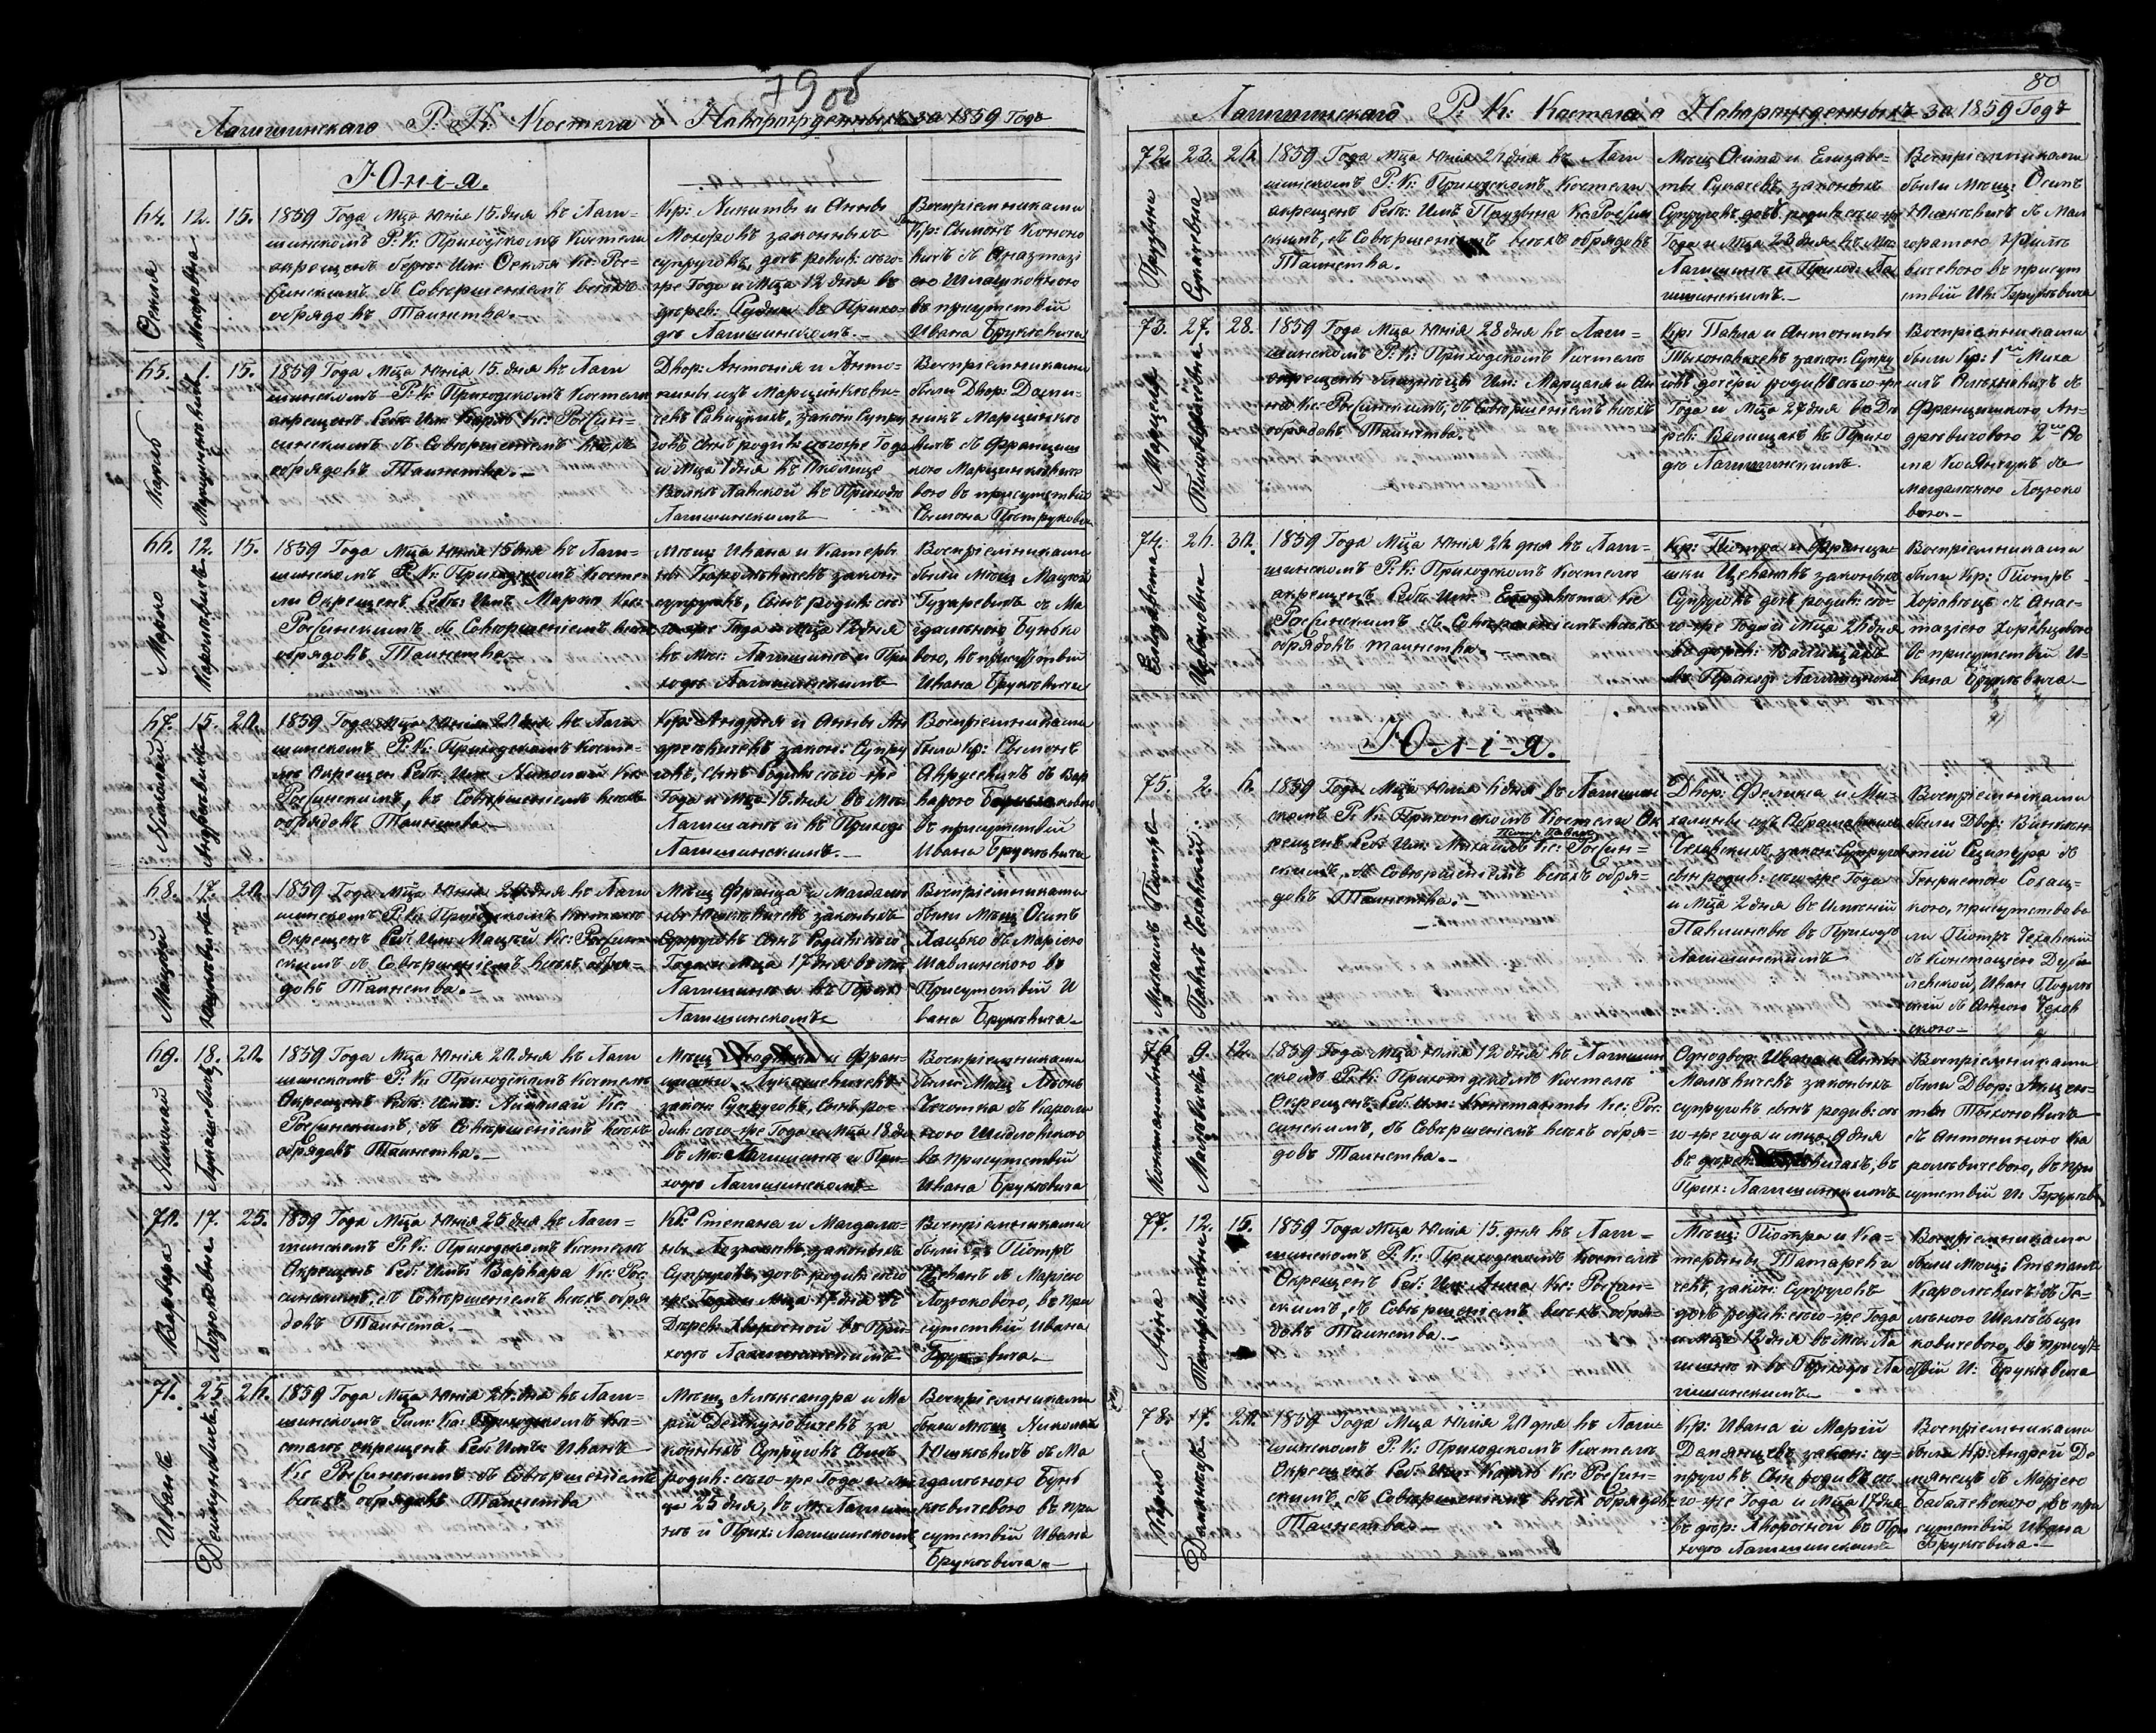 79 об
Логишинскаго Р. К: Костела о Новорожденныхъ за 1859 Годъ
Юнія.
64. 12. 15.
Мохоревна
1859 Года Мца Юнія 15. дня въ Логи-
шинскомъ Р: К: Приходскомъ Костели
окрещенъ
синскимъ, съ Совершеніемъ всехъ
обрядовъ Таинства.-
Кр: Никиты и Анны
законныхъ
супруговъ, дочь родив: сего-
же Года и Мца 12 дня въ
дерев: въ Прихо-
дѣ Логишинскомъ.-
Воспріемниками
Кр: Сымонъ
вичъ съ
въ присутствіи
Ивана Бруклевича
65. 1. 15.
Карлъ
1859 Года Мца Юнія 15. дня въ Логи
шинскомъ Р: К: Приходскомъ Костели
окрещенъ Реб: Им: Карлъ Кс:
синскимъ съ Совершеніемъ всѣхъ
обрядовъ Таинства.-
Двор: Антонія и Анто-
нины изъ Марцинкеви-
чевъ Савицкихъ, закон: Супру
говъ Сынъ родив: сего-же Года
и Мца 1 дня въ Околице
въ Приходѣ
Логишинскимъ
Воспріемниками
были Двор: Доми-
никъ Марцинке
вичъ съ Францишк
кою Марцинкевиче
вою въ присутствіи
Сымона
66. 12. 15.
Марко
Каролевичъ
1859 Года Мца Юнія 15 дня въ Логи-
шинскомъ Р: К: Приходскомъ Косте
ли Окрещенъ Реб: Имъ Марко Кс:
Росинскимъ съ Совершеніемъ всехъ
обрядовъ Таинства.-
Мѣщ Ивана и Катеры
ны Каролевичевъ закон:
супруговъ, Сынъ родив: се
го-же Года и Мца 12 дня
въ Мѣс: Логишинѣ и При
ходѣ Логишинскимъ
Воспріемниками
были Мѣщ Мацѣй
Гузаревичъ съ Ма
гдаленою Бунько
вою, въ присутствіи
Ивана Бруклевича
67. 15. 20.
Николай
Андреевичъ
1859 Года Мца Юнія 20 дня въ Логи
шинскомъ Р: К: Приходскомъ Косте-
лѣ Окрещен Реб: Им: Николай Кс:
Росинскимъ, въ Совершеніемъ всехъ
обрядовъ Таинства.-
Кр: Андрея и Анны Ан
дреевичевъ закон: Супру
говъ, сынъ Родив: сего-же
Года и Мца 15. дня въ Мѣс:
Логишинѣ и въ Приходѣ
Логишинскимъ.-
Воспріемниками
были Кр: Сымонъ
съ Вар
варою
въ присутствіи
Ивана Бруклевича
68. 17. 20.
Мацѣй
Юшкевичъ
1859 Года Мца Юнія 20 дня въ Логи
шинскомъ Р: К: Приходскомъ Костелѣ
Окрещенъ Реб: Им: Мацѣй Кс: Росин-
скимъ съ Совершеніемъ всехъ обря-
довъ Таинства.-
Мѣщ Франца и Магдале
ны Юшкевичевъ законныхъ
Супруговъ Сынъ Родив: сего
Года и Мца 17 дня въ Мѣс
Логишинѣ и въ Приход
Логишинскомъ
Воспріемниками
были Мѣщ Осипъ
Хацько съ Маріею
Шавлинскою въ
Присутствіи И
вана Бруклевича-
69. 18. 20.
Николай
Лукашевичъ
1859 Года Мца Юнія 20. дня въ Логи
шинскомъ Р: К: Приходскомъ Костелѣ
Окрещенъ Реб: Имъ: Николай Кс:
Росинскимъ, съ Совершеніемъ всехъ
обрядовъ Таинства.-
Мѣщ и Фран-
цишки Лукашевичевъ
закон: Супруговъ, Сынъ ро-
див: сего-же Года и Мца 18 дня
въ Мѣс: Логишинѣ и При-
ходѣ Логишинскомъ
Воспріемниками
были Мѣщ
съ Кароли
ною Шидловскою
въ присутствіи
Ивана Бруклевича
70. 17. 25.
Варвара
Лозюковна
1859 Года Мца Юнія 25 дня въ Логи-
шинскомъ Р: К: Приходскомъ Костелѣ
Окрещенъ Реб: Имъ: Варвара Кс: Рос
синскимъ, съ Совершеніемъ всехъ обря
довъ Таинста.-
Кр: Степана и Магдале-
ны Лозюковъ, законныхъ
Супруговъ, дочь родив: сего
же Года и Мца 17. дня въ
Дерев: Хворосной въ При-
ходѣ Логишинскимъ
Воспріемниками
были Кр: Піотръ
Цеванъ съ Маріею
Лозюковою, въ при
сутствіи Ивана
Бруклевича.-
71. 25. 26.
Иванъ
Дейкуновичъ
1859 Года Мца Юнія 26 дня въ Логи-
шинскомъ Рим: Ка: Приходскомъ Ко-
стелѣ окрещенъ Реб: Имъ: Иванъ
Кс Росинскимъ съ Совершеніемъ
всехъ обрядовъ Таинства
Мѣщ Александра и Ма
ріи Дейкуновичевъ за
конныхъ Супруговъ Сынъ
родив: сего-же Года и Мѣ
ца 25 дня, въ М: Логиши
нѣ и Прих: Логишинскомъ
Воспріемниками
были Мѣщ Николай
Юшкевичъ съ Ма
гдаленою Бунь
кевичевою въ при
сутствіи Ивана
Бруклевича.-
80
Логишинскаго Р. К: Костела о Новорожденныхъ за 1859 Годъ
72. 23. 26.
1859 Года Мца Юнія 26 дня въ Логи
шинскомъ Р: К: Приходскомъ Костели
окрещенъ Реб: Имъ Прузына Кс: Росин
скимъ, съ Совершеніемъ всехъ обрядовъ
Таинства.
Мѣщ Осипа и Елизаве-
ты законныхъ
Супруговъ дочь родив: сего-же
Года и Мца 23 дня въ Мѣс:
Логишинѣ и Приход: Ло
гишинскимъ.-
Воспріемниками
были Мѣщ: Осипъ
Юшкевичъ съ Мал
горатою
вичевою въ присут
ствіи Ив: Бруклевича
73. 27. 28.
Марцеля
1859 Года Мца Юнія 28 дня въ Логи-
шинскомъ Р: К: Приходскомъ Костелѣ
окрещены близнецы Им: Марцеля и Ан
на Кс: Росинскимъ, съ Совершеніемъ всехъ
обрядовъ Таинства.
Кр: Павла и Антонины
Тихоновичевъ закон: Супру
говъ дочери родив: сего-же
Года и Мца 27 дня въ Де
рев: Валищахъ въ Прихо
дѣ Логишинскимъ.
Воспріемниками
были Кр: 1ой Миха
илъ съ
Францишкою Ан-
дреевичовою 2ой
ма съ
Магдаленою Лозюко
вою.-
74. 26. 30.
Елизавета
Цевановна
1859 Года Мца Юнія дня въ Логи-
шинскомъ Р: К: Приходскомъ Костелѣ
окрещенъ Реб: Им: Елизавета Кс
Росинскимъ съ Совершеніемъ всехъ
обрядовъ таинства.-
Кр: Піотра и Франци-
шки Цевановъ законныхъ
Супруговъ дочь родив: се-
го-же Года и Мца 26 дня
въ дерев: Валищахъ
въ Приход: Логишинскомъ
Воспріемниками
были Кр: Піотръ
съ Анас-
тазіею
въ присутствіи И-
вана Бруклевича.-
Ю-л-і-я.
75. 2. 6.
Михаилъ Піотръ
Павелъ Чеховскій
1859 Года Мца Юлія 6 дня въ Логишин
скомъ Р: К: Приходскомъ Костели Ок
Піотръ Павелъ
рещенъ Реб: Им: Михаилъ Кс: Росин-
скимъ, съ Совершеніемъ всехъ обря-
довъ Таинства.-
Двор: Феликса и Ми-
халины изъ
Чеховскихъ, закон: Супруговъ
сынъ родив: сего-же Года
и Мца 2 дня въ Имѣніи
въ Приходѣ
Логишинскимъ
Воспріемниками
были Двор: Викен-
тій съ
Генриетою
кою, присутствова
ли Піотръ Чеховскій
съ Констацею Дуба
левской, Иванъ
съ Анною Чехов
скою-
76. 9. 12.
Константый
Малевичъ
1859 Года Мца Юлія 12 дня въ Логишин
скомъ Р: К: Приходскомъ Костелѣ
Окрещенъ Реб: Им: Константы Кс: Рос
синскимъ, съ Совершеніемъ всехъ обря-
довъ Таинства.-
Однодвор: Ивана и Анны
Малевичевъ законныхъ
супруговъ сынъ родив: се
го-же года и мца 9 дня
въ дерев: въ
Прих: Логишинскимъ
Воспріемниками
были Двор:
Тихоновичъ
съ Антониною Ка
ролевичевою, въ при
сутствіи И: Бруклев
77. 12. 15.
Анна
Татаревичъ
1859 Года Мца Юлія 15. дня въ Логи-
шинскомъ Р: К: Приходскомъ Костелѣ
Окрещенъ Реб: Им: Анна Кс: Росин-
скимъ, съ Совершеніемъ всехъ обря-
довъ Таинства.-
Мѣщ: Піотра и Ка-
терыны Татареви
чевъ, закон: Супруговъ
дочь родив: сего-же Года
и Мца 12 дня въ Мѣс: Ло
гишинѣ и въ Приходѣ Ло
гишинскимъ
Воспріемниками
были Мѣщ: Степанъ
Каролевичъ съ
въ присут-
ствіи И: Бруклевича
78. 17. 20.
Карлъ
1859 Года Мца Юлія 20 дня въ Логи-
шинскомъ Р: К: Приходскомъ Костелѣ
Окрещенъ Реб: Им: Карлъ Кс: Росин-
скимъ, съ Совершеніемъ всехъ обрядов
Таинства.-
Кр: Ивана и Маріи
закон: су-
пруговъ Сын родивъ: се
го-же Года и Мца 17 дня
въ дер: Хворосной въ При
ходѣ Логишинскимъ
Воспріемниками
были Кр: Андрей Де
мянецъ съ Маріею
въ при
сутствіи Ивана
Бруклевича.-